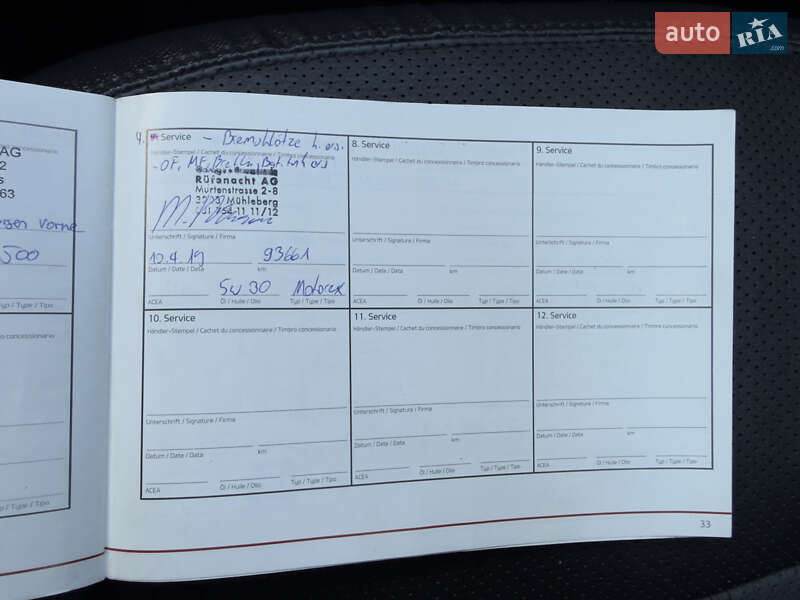 auto RIA.com
AG
2
s
63
vorne
500
Typ / Type / Tipo
4. Service - Bremsklötze h. ers.
Händler-Stempel / Cachet du concessionnaire / Timbro concessionario
- OF, MF,
Rüfenacht AG
Murtenstrasse 2-8
Mühleberg
11 11/12
Unterschrift / Signature / Firma
10.4.19 93661
Datum / Date / Data km
5W30 Motorex
ACEA Öl / Huile / Olio Typ / Type / Tipo
8. Service
Händler-Stempel / Cachet du concessionnaire / Timbro concessionario
Unterschrift / Signature / Firma
Datum / Date / Data km
ACEA Öl / Huile / Olio Typ / Type / Tipo
9. Service
Händler-Stempel / Cachet du concessionnaire / Timbro concessionario
Unterschrift / Signature / Firma
Datum / Date / Data km
ACEA Öl / Huile / Olio Typ / Type / Tipo
10. Service
Händler-Stempel / Cachet du concessionnaire / Timbro concessionario
Unterschrift / Signature / Firma
Datum / Date / Data km
ACEA Öl / Huile / Olio Typ / Type / Tipo
11. Service
Händler-Stempel / Cachet du concessionnaire / Timbro concessionario
Unterschrift / Signature / Firma
Datum / Date / Data km
ACEA Öl / Huile / Olio Typ / Type / Tipo
12. Service
Händler-Stempel / Cachet du concessionnaire / Timbro concessionario
Unterschrift / Signature / Firma
Datum / Date / Data km
ACEA Öl / Huile / Olio Typ / Type / Tipo
33